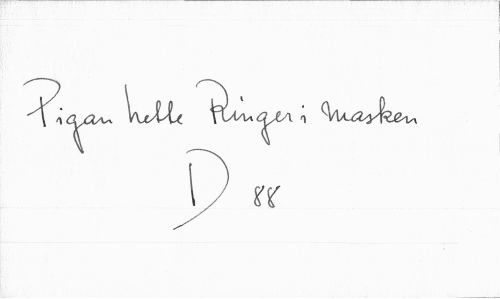 Pigan hette Ringer i masken
D 88